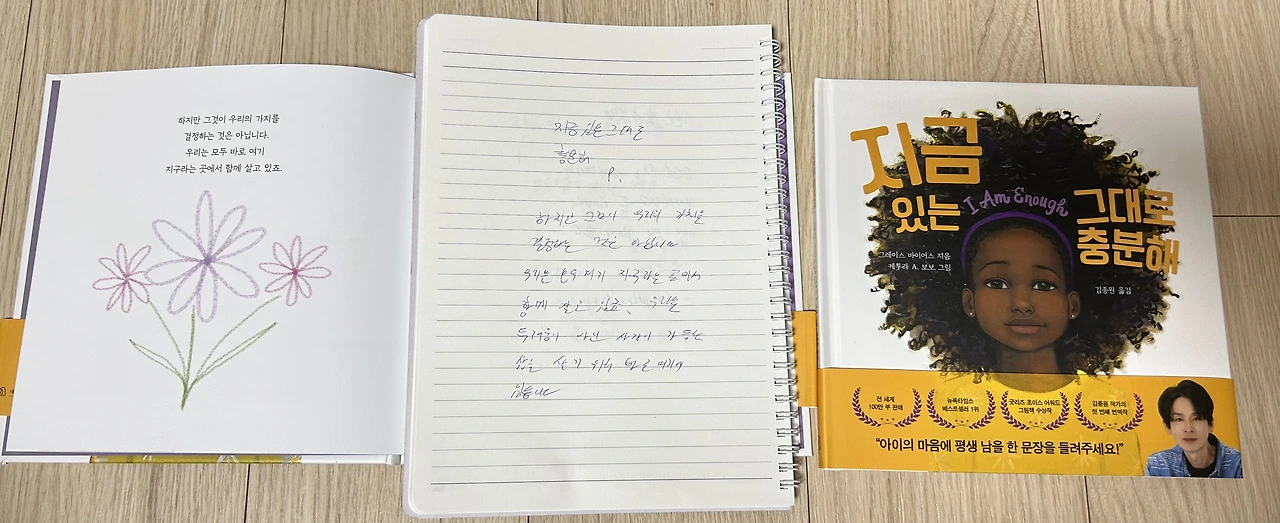 하지만 그것이 우리의 가치를
결정하는 것은 아닙니다.
우리는 모두 바로 여기
지구라는 곳에서 함께 살고 있죠.
지금 있는 그대로
충분해
P.
하지만 그것이 우리의 가치를
결정하는 것은 아닙니다
우리는 모두 여기 지구라는 곳에서
함께 살고 있죠. 우리는
두려움이 아닌 사랑이 가득한
삶을 살기 위해 바로 여기에
있습니다
지금
있는
I Am Enough
그대로
충분해
그레이스 바이어스 지음
케투라 A. 보보 그림
김종원 옮김
전 세계
100만 부 판매
뉴욕타임스
베스트셀러 1위
굿리즈 초이스 어워드
그림책 수상작
김종원 작가의
첫 번째 번역작
“아이의 마음에 평생 남을 한 문장을 들려주세요!”